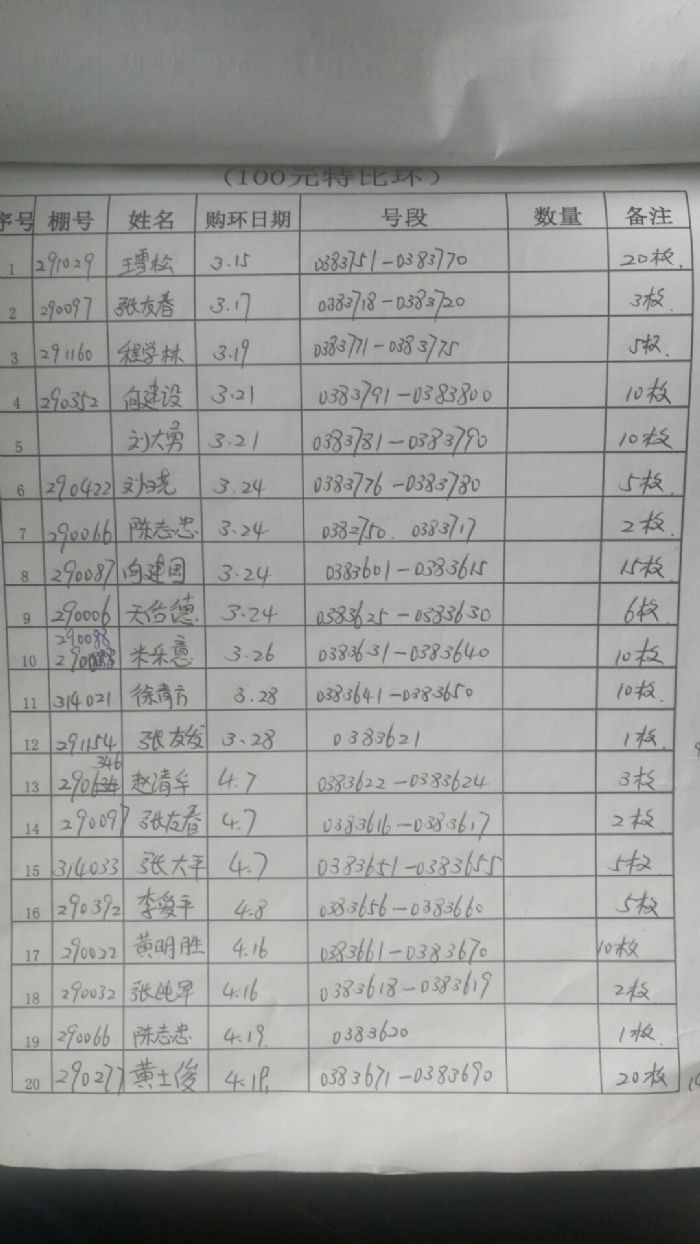 (100元特比环)
序号 棚号 姓名 购环日期 号段 数量 备注
1 291029 王雪松 3.15 0383751-0383770 20枚
2 290097 张友春 3.17 0383718-0383720 3枚
3 291160 程学林 3.19 0383771-0383775 5枚
4 290352 向建设 3.21 0383791-0383800 10枚
5 刘大勇 3.21 0383781-0383790 10枚
6 290422 3.24 0383776-0383780 5枚
7 290066 陈志忠 3.24 0382750. 0383717 2枚
8 290087 向建国 3.24 0383601-0383615 15枚
9 290006 3.24 0383625-0383630 6枚
290088
10 米乐意 3.26 0383631-0383640 10枚
11 314021 3.28 0383641-0383650 10枚
12 291154 张友发 3.28 0383621 1枚
346
13 赵清车 4.7 0383622-0383624 3枚
14 290097 张友春 4.7 0383616-0383617 2枚
15 314033 张大平 4.7 0383651-0383655 5枚
16 290392 李爱平 4.8 0383656-0383660 5枚
17 290022 黄明胜 4.16 0383661-0383670 10枚
18 290032 张纯早 4.16 0383618-0383619 2枚
19 290066 陈志忠 4.19 0383620 1枚
20 290277 黄士俊 4.19 0383671-0383690 20枚